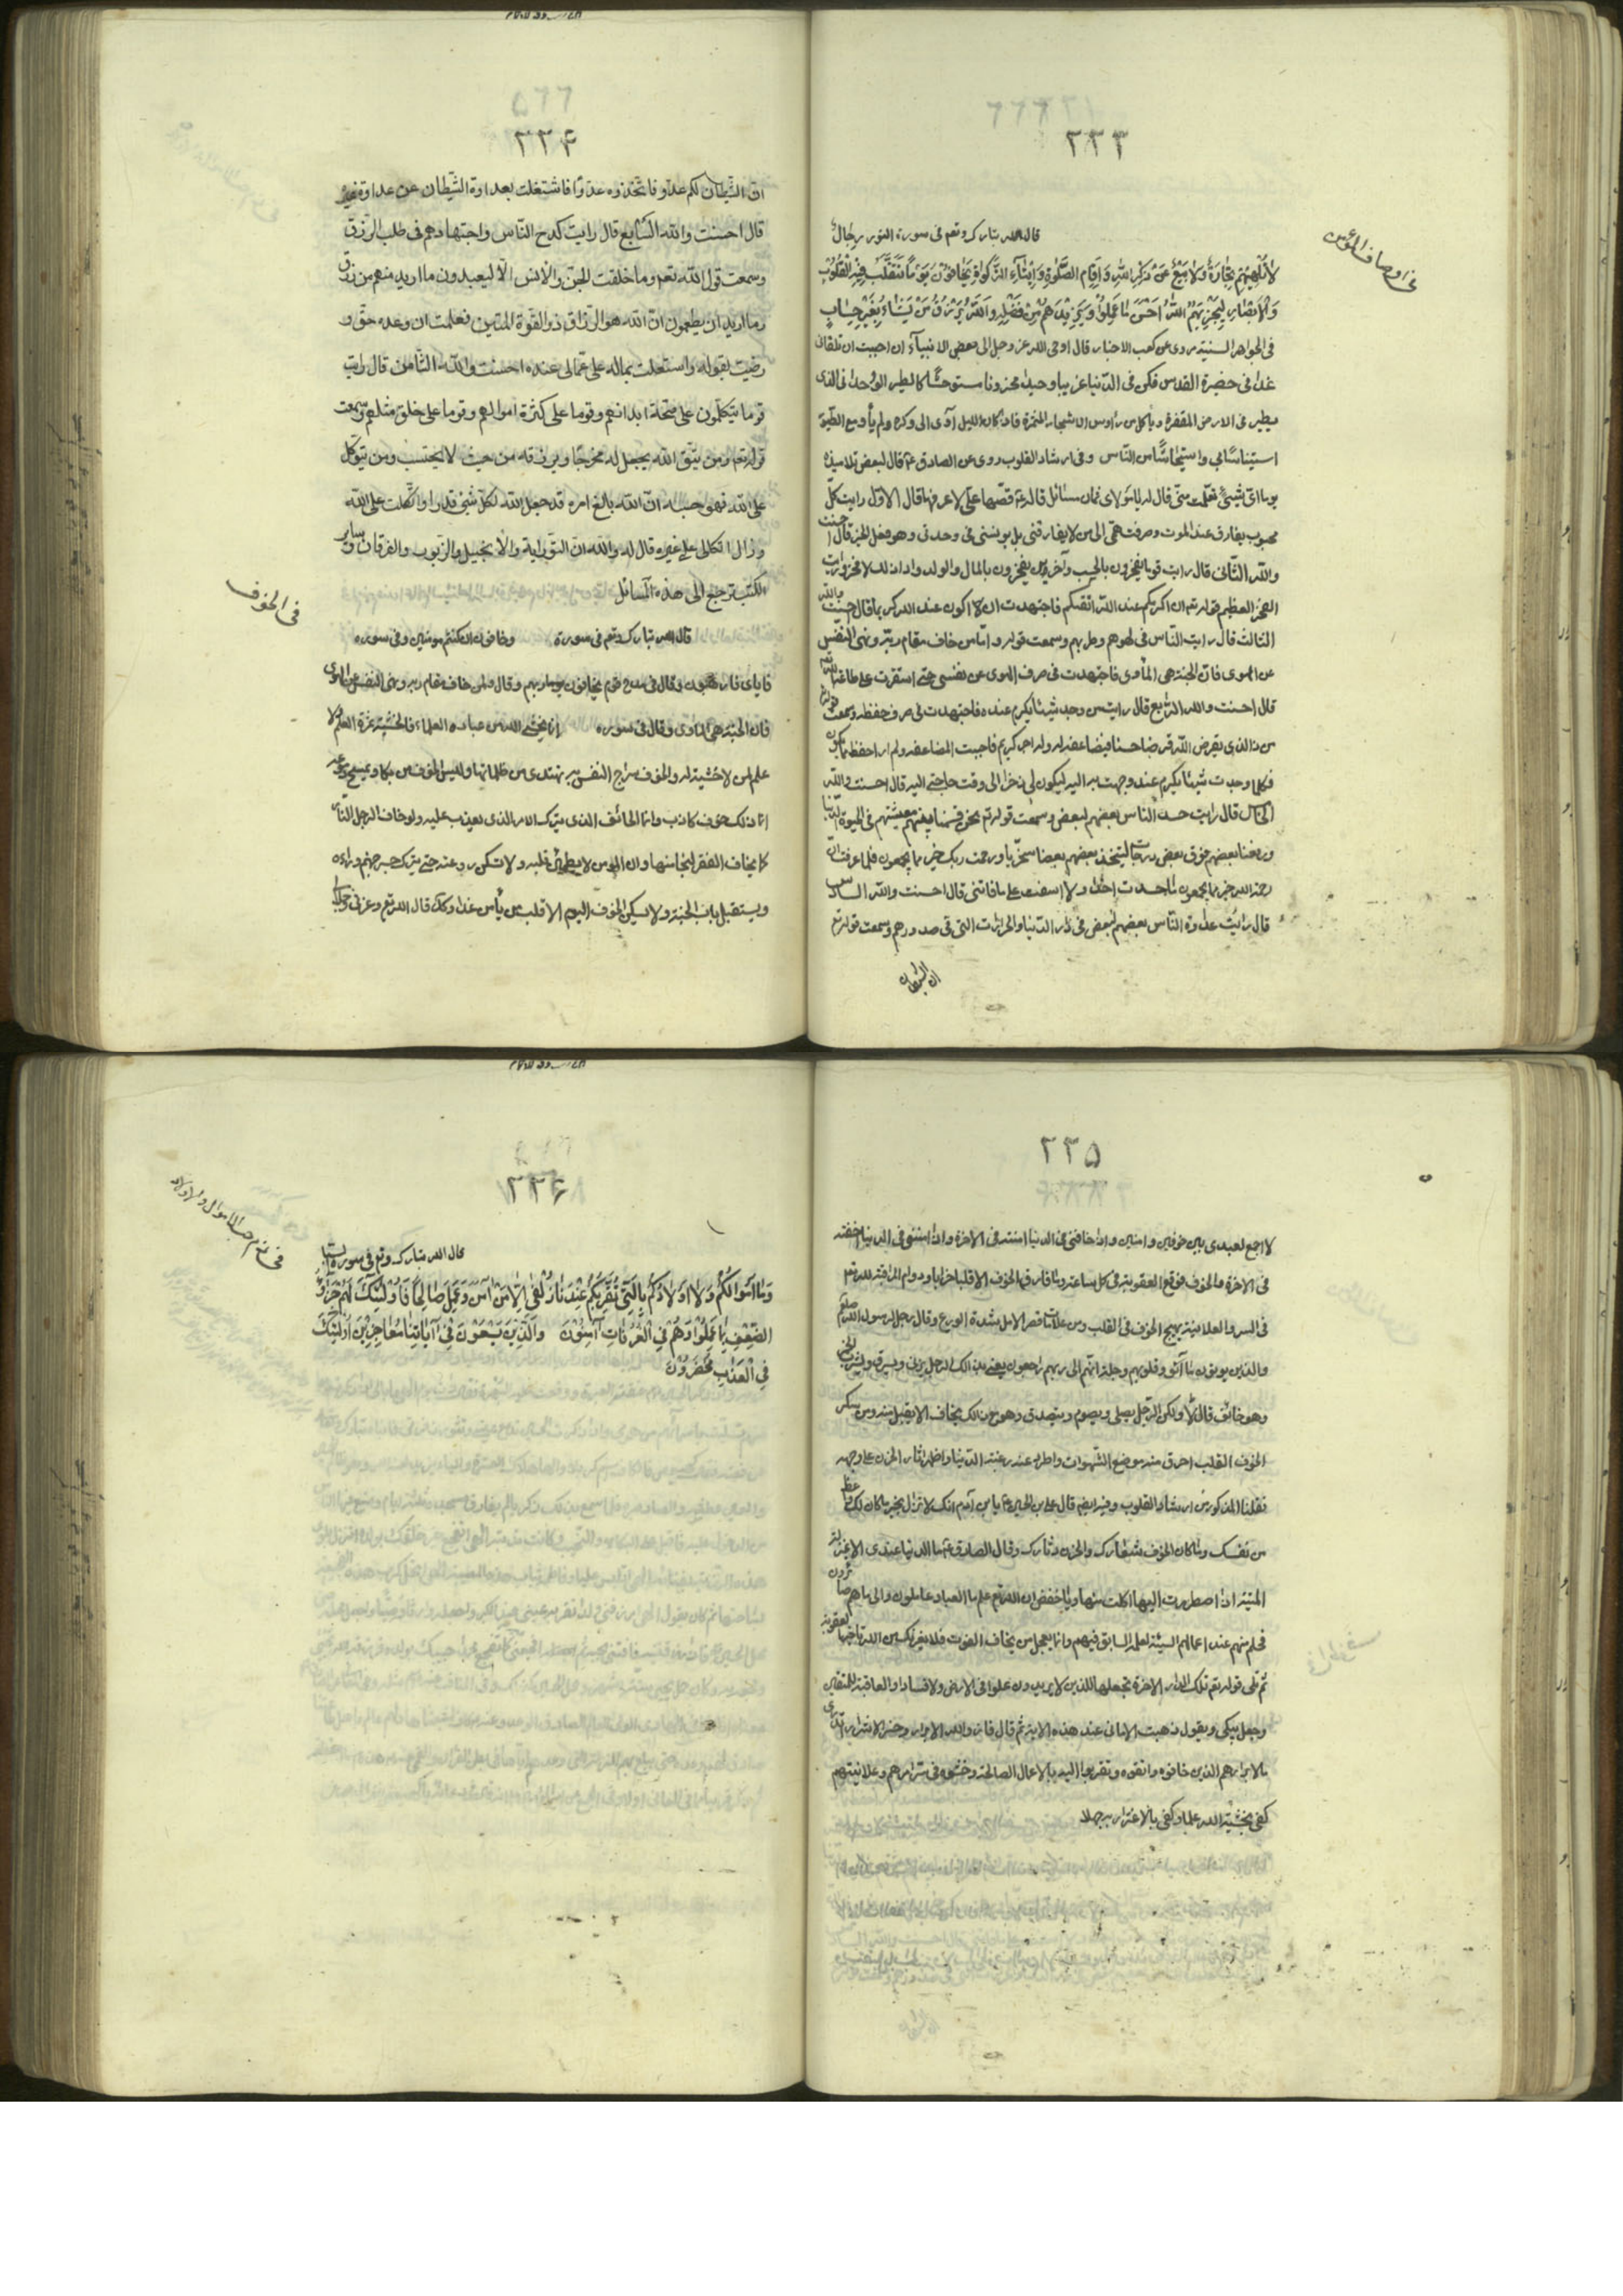 ٢٣٣
فی اوصاف المؤمن
قال الله تبارک وتعم فی سورة النور رجالٌ
لا تُلْهِيهِمْ تِجَارَةٌ وَلا بَيْعٌ عَنْ ذِكْرِ اللَّهِ وَاِقَامِ الصَّلوٰةِ وَاِيتَآءِ الزَّكوٰاةِ يَخَافُونَ يَوْمًا تَتَقَلَّبُ فِيهِ الْقُلُوبُ
وَالْاَبْصَارُ لِيَجْزِيَهُمُ اللَّهُ اَحْسَنَ مَا عَمِلُوا وَيَزِيدَهُمْ مِنْ فَضْلِهِ وَاللَّهُ يَرْزُقُ مَنْ يَشَاءُ بِغَيْرِ حِسَابٍ
فی الجواهر السنیة روی عن کعب الاحبار قال اوحی الله عز وجل الی بعض الانبیآء ان احببت ان تلقانی
غدا فی حضیرة القدس فکن فی الدنیا غریبا وحیدا محزونا مستوحشًا کالطیر الوُحدانی الذی
یطیر فی الارض المقفرة ویأکل من رٶس الاشجار المثمرة فاذا کان اللیل آوی الی وکره ولم یأو مع الطیر
استیناسًا بی واستیحاشًا من النّاس وفی ارشاد القلوب روی عن الصادق ع قال لبعض تلامیذه
یوما ایّ شیئ تعلّمت منّی قال له یا مولای ثمان مسائل قال له ع قصّها علیّ لاعرفها قال الاوّل رایت کلّ
محبوب یفارق عند الموت وصرفت همّی الی من لا یفارقنی بل یونسنی فی وحدتی وهو فعل الخیر قال احسنت
والله الثانی قال رایت قوما یفخرون بالحسب وآخرین یفخرون بالمال والولد واذا ذلک لا فخر ورایت
الفخر العظیم قوله تعم ان اکرمکم عند الله اتقیکم فاجتهدت ان اکون عند الله کریما قال احسنت والله
الثالث قال رایت النّاس فی لهوهم وطربهم وسمعت قوله وامّا من خاف مقام ربّه ونهی النّفس
عن الهوی فانّ الجنّة هی المأوی فاجتهدت فی صرف الهوی عن نفسی حتی استقرت علی طاعة الله
قال احسنت والله الرّابع قال رایت من وجد شیئا یکرم عنده فاجتهد فی حفظه وسمعت قوله
من ذا الذی یقرض الله قرضا حسنا فیضاعفه له وله اجر کریم فاحببت المضاعفة ولم ار احفظ مما یکون
فکلما وجدت شیئا یکرم عندی وجهت به الیه لیکون لی ذخرا الی وقت حاجتی الیه قال احسنت والله
الخامس قال رایت حسد النّاس بعضهم لبعض وسمعت قوله تعم نحن قسمنا بینهم معیشتهم فی الحیوة الدنیا
ورفعنا بعضهم فوق بعض درجات لیتخذ بعضهم بعضا سخریًّا ورحمت ربک خیر مما یجمعون فلما عرفت انّ
رحمة الله خیر مما یجمعون ما حسدت احدًا ولا اسفت علی ما فاتنی قال احسنت والله السادس
قال رایت عداوة النّاس بعضهم لبعض فی دار الدّنیا والحرازات التی فی صدورهم وسمعت قوله تع
ان الشیطان
٢٣٤
انّ الشّیطان لکم عدوّ فاتّخذوه عدوّا فاشتغلت بعداوة الشّیطان عن عداوة غیره
قال احسنت والله السّابع قال رایت کدح النّاس واجتهادهم فی طلب الرّزق
وسمعت قول الله تعم وما خلقت الجنّ والانس الّا لیعبدون ما ارید منهم من رزق
وما ارید ان یطعمون انّ الله هو الرّزاق ذو القوّة المتین فعلمت ان وعده حقّ و
رضیت بقوله واستعملت بماله علی عمّا لی عنده احسنت والله الثّامن قال رایت
قوما یتکلمون علی صحّة ابدانهم وقوما علی کثرة اموالهم وقوما علی خلق مثلهم وسمعت
قوله تعم ومن یتّق الله یجعل له مخرجًا ویرزقه من حیث لا یحتسب ومن یتوکّل
علی الله فهو حسبه انّ الله بالغ امره قد جعل الله لکلّ شئ قدرا واتّکلت علی الله
وزال اتّکالی علی غیره قال له والله انّ التّوراة والانجیل والزّبور والفرقان وسایر
الکتب ترجع الی هذه المسائل
فی الخوف
قال الله تبارک وتعم فی سورة وخافون ان کنتم مومنین وفی سورة
فایای فارهبون وقال فی مدح قوم یخافون ربهم وقال ولمن خاف مقام ربه ونهی النفس عن الهوی
فان الجنة هی الماوی وقال فی سورة انما یخشی الله من عباده العلماء فالخشیة ثمرة العلم ولا
علم لمن لا خشیة له والخوف سراج النفس به تهتدی من ظلماتها ولیس الخوف من بکا ویمسح دموعه
انما ذلک خوف کاذب وانما الخائف الذی یترک الامر الذی یعذب علیه ولو خاف الرجل النّار
کما یخاف الفقر لنجا منها وان المؤمن لا یطمئن قلبه ولا تسکن روعته حتی یترک جسر جهنم وراءه
ویستقبل باب الجنة ولا یسکن الخوف الیوم الا قلب من یأمن غدا وکذا قال الله تعم وعزتی وجلالی
٢٣٥
لا اجمع لعبدی بین خوفین وامنین واذا خافنی فی الدنیا امنته فی الآخرة واذا امننی فی الدنیا اخفته
فی الآخرة والخوف توقع العقوبة فی کل ساعة وما فارق الخوف الا قلبا خرابا ودوام المراقبة لله تعم
فی السر والعلانیة یهیج الخوف فی القلب ومن علاماته قصر الامل وشدة الورع وقال رجل لرسول الله صلعم
والذین یوتون ما آتوا وقلوبهم وجلة انهم الی ربهم راجعون یعنی بذالک الرجل یزنی ویسرق ویشرب الخمر
وهو خائف قال لا ولکن الرّجل یصلی ویصوم ویتصدق وهو مع ذالک یخاف الا یقبل منه ومن سکن
الخوف القلب احرق منه موضع الشّهوات واطرد عنه رغبة الدّنیا واظهر آثار الحزن علی وجهه
نقلنا المذکور من ارشاد القلوب وفیه ایضا قال علی بن الحسین ع یا بن آدم انک لا تزال بخیر ما کان لک واعظ
من نفسک وما کان الخوف شعارک والحزن دثارک وقال الصادق ع ما الدنیا عندی الا بمنزلة
المیتة اذا اضطررت الیها اکلت منها ویا حفص ان الله تعم علم ما العباد عاملون والی ما هم صائرون
فحلم منهم عند اعمالهم السیئة لعلمه السابق فیهم وانما یعجل من یخاف الفوت فلا یغرنک من الله تاخیر العقوبة
ثم تلی قوله تعم تلک الدار الآخرة نجعلها للذین لا یریدون علوا فی الارض ولا فسادا والعاقبة للمتقین
وجعل یبکی ویقول ذهبت الامانی عند هذه الآیة ثم قال فاز والله الابرار وخسر الاشرار اتدری
ما الابرار هم الذین خافوه واتقوه وتقربوا الیه بالاعمال الصالحة وخشوه فی سرائرهم وعلانیتهم
کفی بخشیة الله علما وکفی بالاغترار به جهلا
٢٣٦
فی ذم حب الاموال والاولاد
قال الله تبارک وتعم فی سورة سبا
وَمَا اَمْوَالُكُمْ وَلا اَوْلادُكُمْ بِالَّتِي تُقَرِّبُكُمْ عِنْدَنَا زُلْفَى اِلّا مَنْ آمَنَ وَعَمِلَ صَالِحًا فَاُولٰئِكَ لَهُمْ جَزَآءُ
الضِّعْفِ بِمَا عَمِلُوا وَهُمْ فِي الْغُرُفَاتِ آمِنُونَ وَالَّذِينَ يَسْعَوْنَ فِي آيَاتِنَا مُعَاجِزِينَ اُولٰئِكَ
فِي الْعَذَابِ مُحْضَرُونَ